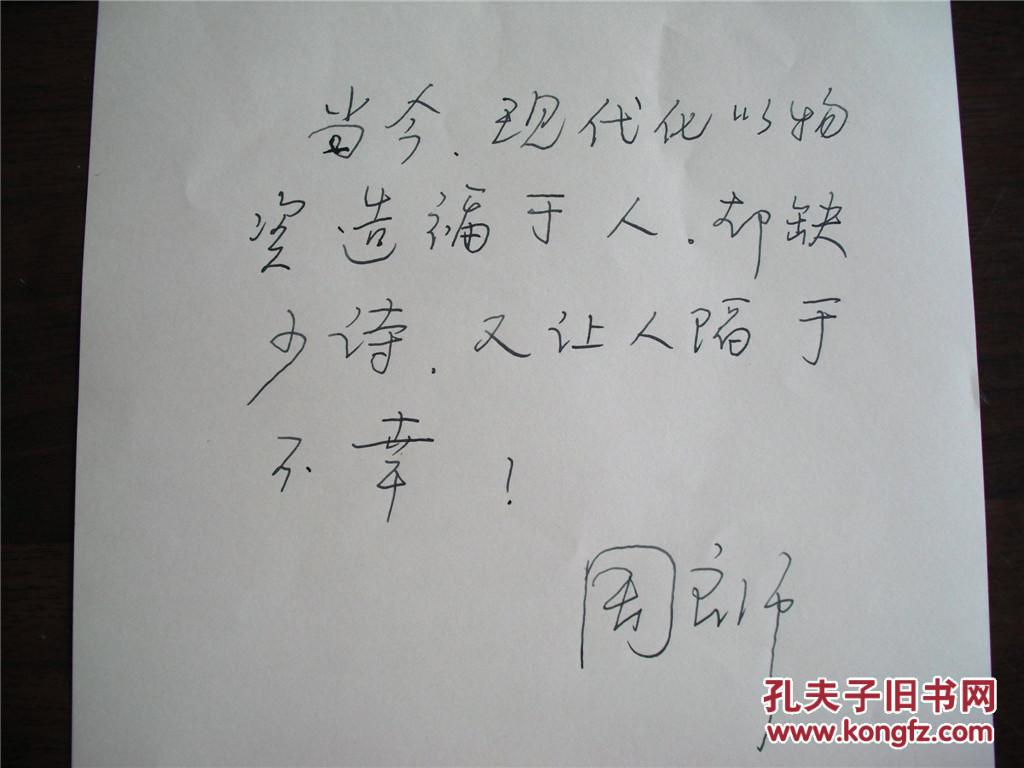 当今.现代化以物
资造福于人.却缺
少诗.又让人陷于
不幸！
周良沛
孔夫子旧书网
www.kongfz.com